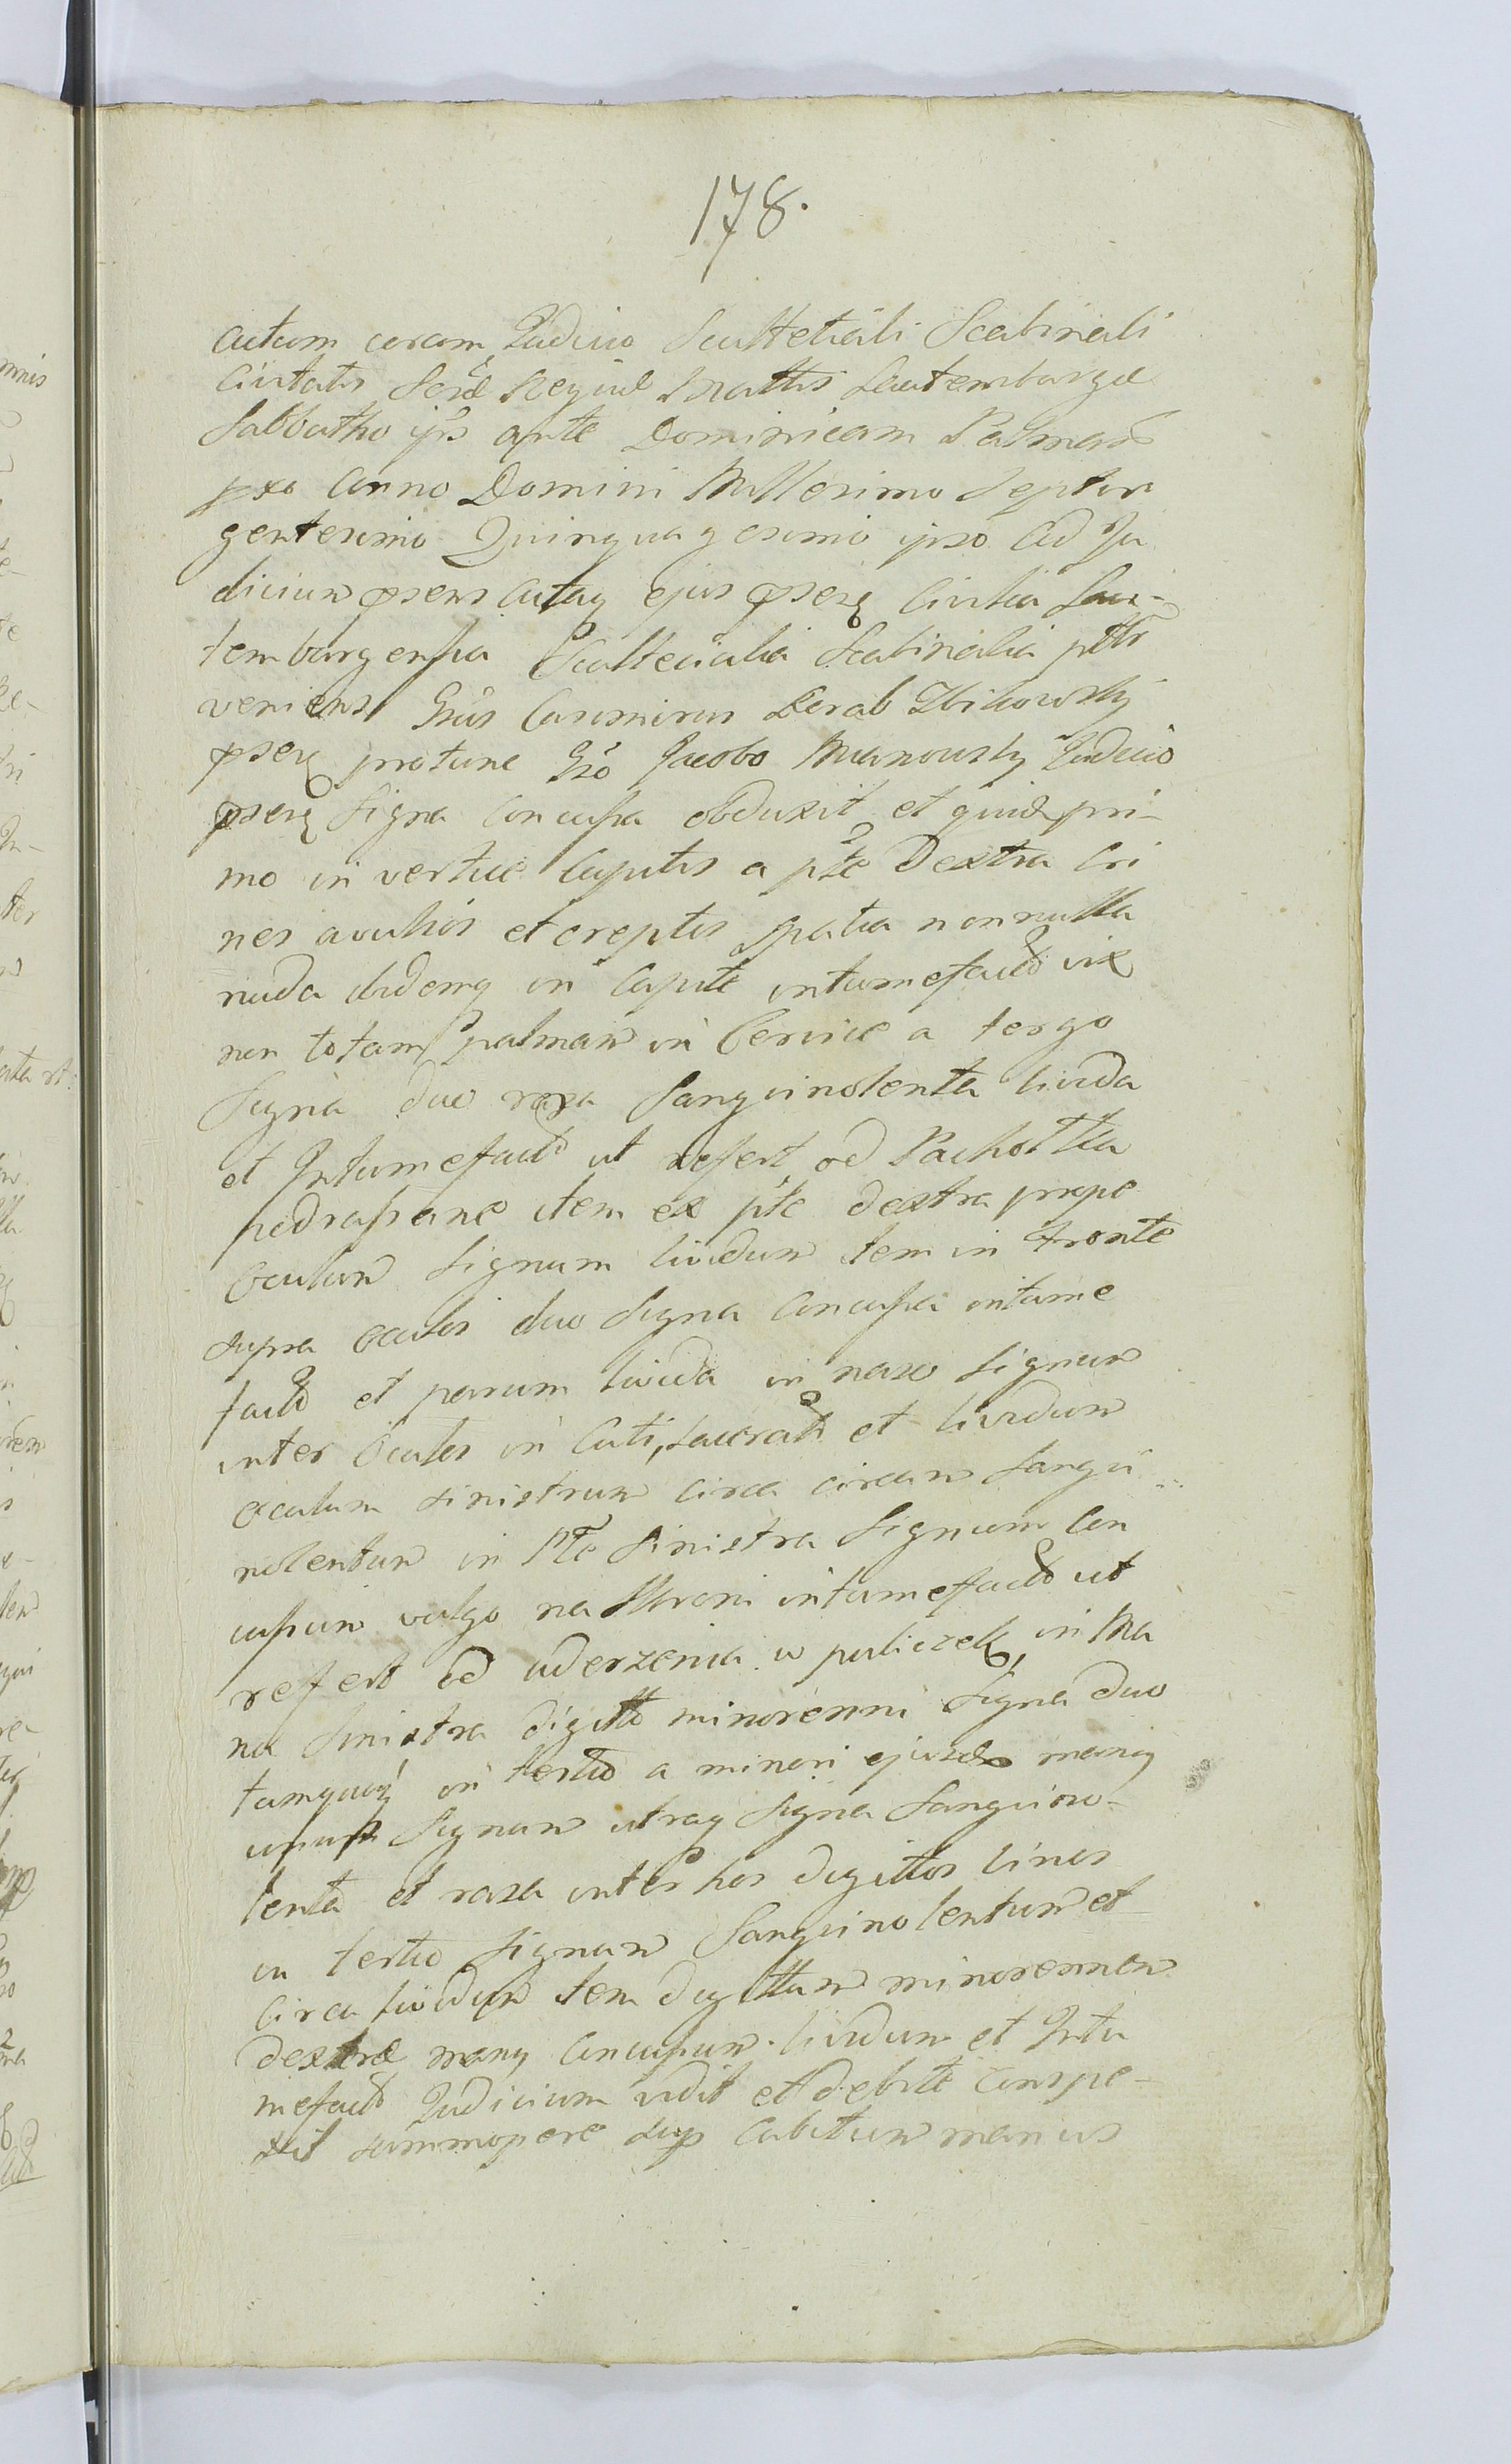 178.
Actum coram Judicio Scultetiali Scabinali
Civitatis Sacrae Regiae Mattis Lautemburgae
Sabbatho ipso ante Dominicam Palmarum
pxo Anno Domini Millesimo Septin
gentesimo Quinquagesimo ipso Ad Ju
dicium psens Actaq ejus psens Civilia Lau-
temburgensia Scultecialia Scabinalia psltr
veniens Gnus Casimirus Korab Zbikowsky
psens protunc Gso Jacobo Mianowsky Judicio
psens Signa Concussa obduxit et quidem pri-
mo in vertice Capitis a pte Dextra Cri
nes avulsos et ereptos spatia nonnulla
nuda ibidemq in Capite intumefactio vix
non totam palmam in Cervice a tergo
Signa duo rasa Sanguinolenta livida
et Intumefacta ut refert od
item ex pte dextra prope
Oculum Signum lividum item in fronte
supra oculos duo Signa Concussa intume
facta et parum livida in naso Signum
inter Oculos in Cuti, laceratum et lividum
oculum sinistrum circa circum Sangui
nolentum in Pte Sinistra Signum Con
cussum vulgo na Skroni intumefactum ut
refert od uderzenia w policzek, in Ma
nu Sinistra digitto minorenni Signa duo
tamquam in tertio a minori ejusdem manq
unum Signum utraq Signa Sanguino-
lenta et rasa inter hos digittos
in tertio Signum Sanguinolentum et
circa lividum item digittum minorennem
dextrae manq Concussum lividum et Intu
mefactum Judicium vidit et debite conspe-
xit summopere Cubitum manus